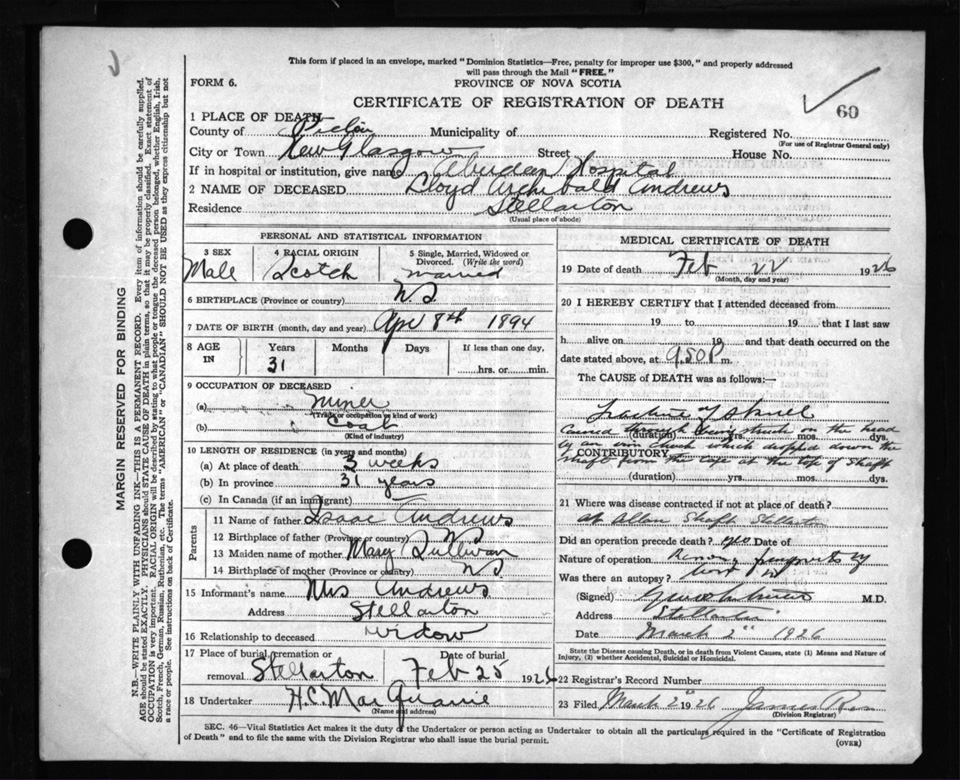 This form if placed in an envelope, marked "Dominion Statistics—Free, penalty for improper use $300," and properly addressed
will pass through the Mail "FREE."
FORM 6.
PROVINCE OF NOVA SCOTIA
CERTIFICATE OF REGISTRATION OF DEATH
60
1 PLACE OF DEATH—
County of Pictou Municipality of Registered No.
(For use of Registrar General only)
City or Town New Glasgow Street House No.
If in hospital or institution, give name Aberdeen Hospital
2 NAME OF DECEASED Lloyd Archibald Andrews
Residence Stellarton
(Usual place of abode)
PERSONAL AND STATISTICAL INFORMATION
3 SEX 4 RACIAL ORIGIN 5 Single, Married, Widowed or Divorced. (Write the word)
Male Scotch married
6 BIRTHPLACE (Province or country) N.S
7 DATE OF BIRTH (month, day and year) Apr 8th 1894
8 AGE IN Years Months Days If less than one day,
31 hrs. or min.
9 OCCUPATION OF DECEASED
(a) miner
(Trade or occupation or kind of work)
(b) Coal
(Kind of industry)
10 LENGTH OF RESIDENCE (in years and months)
(a) At place of death 3 weeks
(b) In province 31 years
(c) In Canada (if an immigrant)
Parents
11 Name of father Isaac Andrews
12 Birthplace of father (Province or country) N S
13 Maiden name of mother Mary Sullivan
14 Birthplace of mother (Province or country) N S
15 Informant's name Mrs Andrews
Address Stellarton
16 Relationship to deceased widow
17 Place of burial, cremation or removal Stellarton Date of burial Feb 25 1926
18 Undertaker H.C. MacQuarrie
(Name and address)
MEDICAL CERTIFICATE OF DEATH
19 Date of death Feb 22 1926
(Month, day and year)
20 I HEREBY CERTIFY that I attended deceased from
19 to 19 that I last saw
h alive on 19 and that death occurred on the
date stated above, at 9.50 P m.
The CAUSE of DEATH was as follows:—
Fracture of Skull
caused through being struck on the head
(duration) yrs. mos. dys.
by an which dropped down the
CONTRIBUTORY
shaft from the cage at the top of shaft
(duration) yrs. mos. dys.
21 Where was disease contracted if not at place of death?
at Allan Shaft Stellarton
Did an operation precede death? Date of
Nature of operation
Was there an autopsy?
(Signed) M.D.
Address Stellarton
Date March 2nd 1926
State the Disease causing Death, or in death from Violent Causes, state (1) Means and Nature of
Injury, (2) whether Accidental, Suicidal or Homicidal.
22 Registrar's Record Number
23 Filed March 2nd 1926 James
(Division Registrar)
SEC. 46—Vital Statistics Act makes it the duty of the Undertaker or person acting as Undertaker to obtain all the particulars required in the "Certificate of Registration
of Death" and to file the same with the Division Registrar who shall issue the burial permit.
(OVER)
MARGIN RESERVED FOR BINDING
N.B.—WRITE PLAINLY WITH UNFADING INK—THIS IS A PERMANENT RECORD. Every item of information should be carefully supplied.
AGE should be stated EXACTLY. PHYSICIANS should STATE CAUSE OF DEATH in plain terms, so that it may be properly classified. Exact statement of
OCCUPATION is very important. RACIAL ORIGIN will be described by stating to what people or tongue the deceased person belonged, whether English, Irish,
Scotch, French, German, Russian, Ruthenian, etc. The terms "AMERICAN" or "CANADIAN" SHOULD NOT BE USED as they express citizenship but not
a race or people. See instructions on back of Certificate.